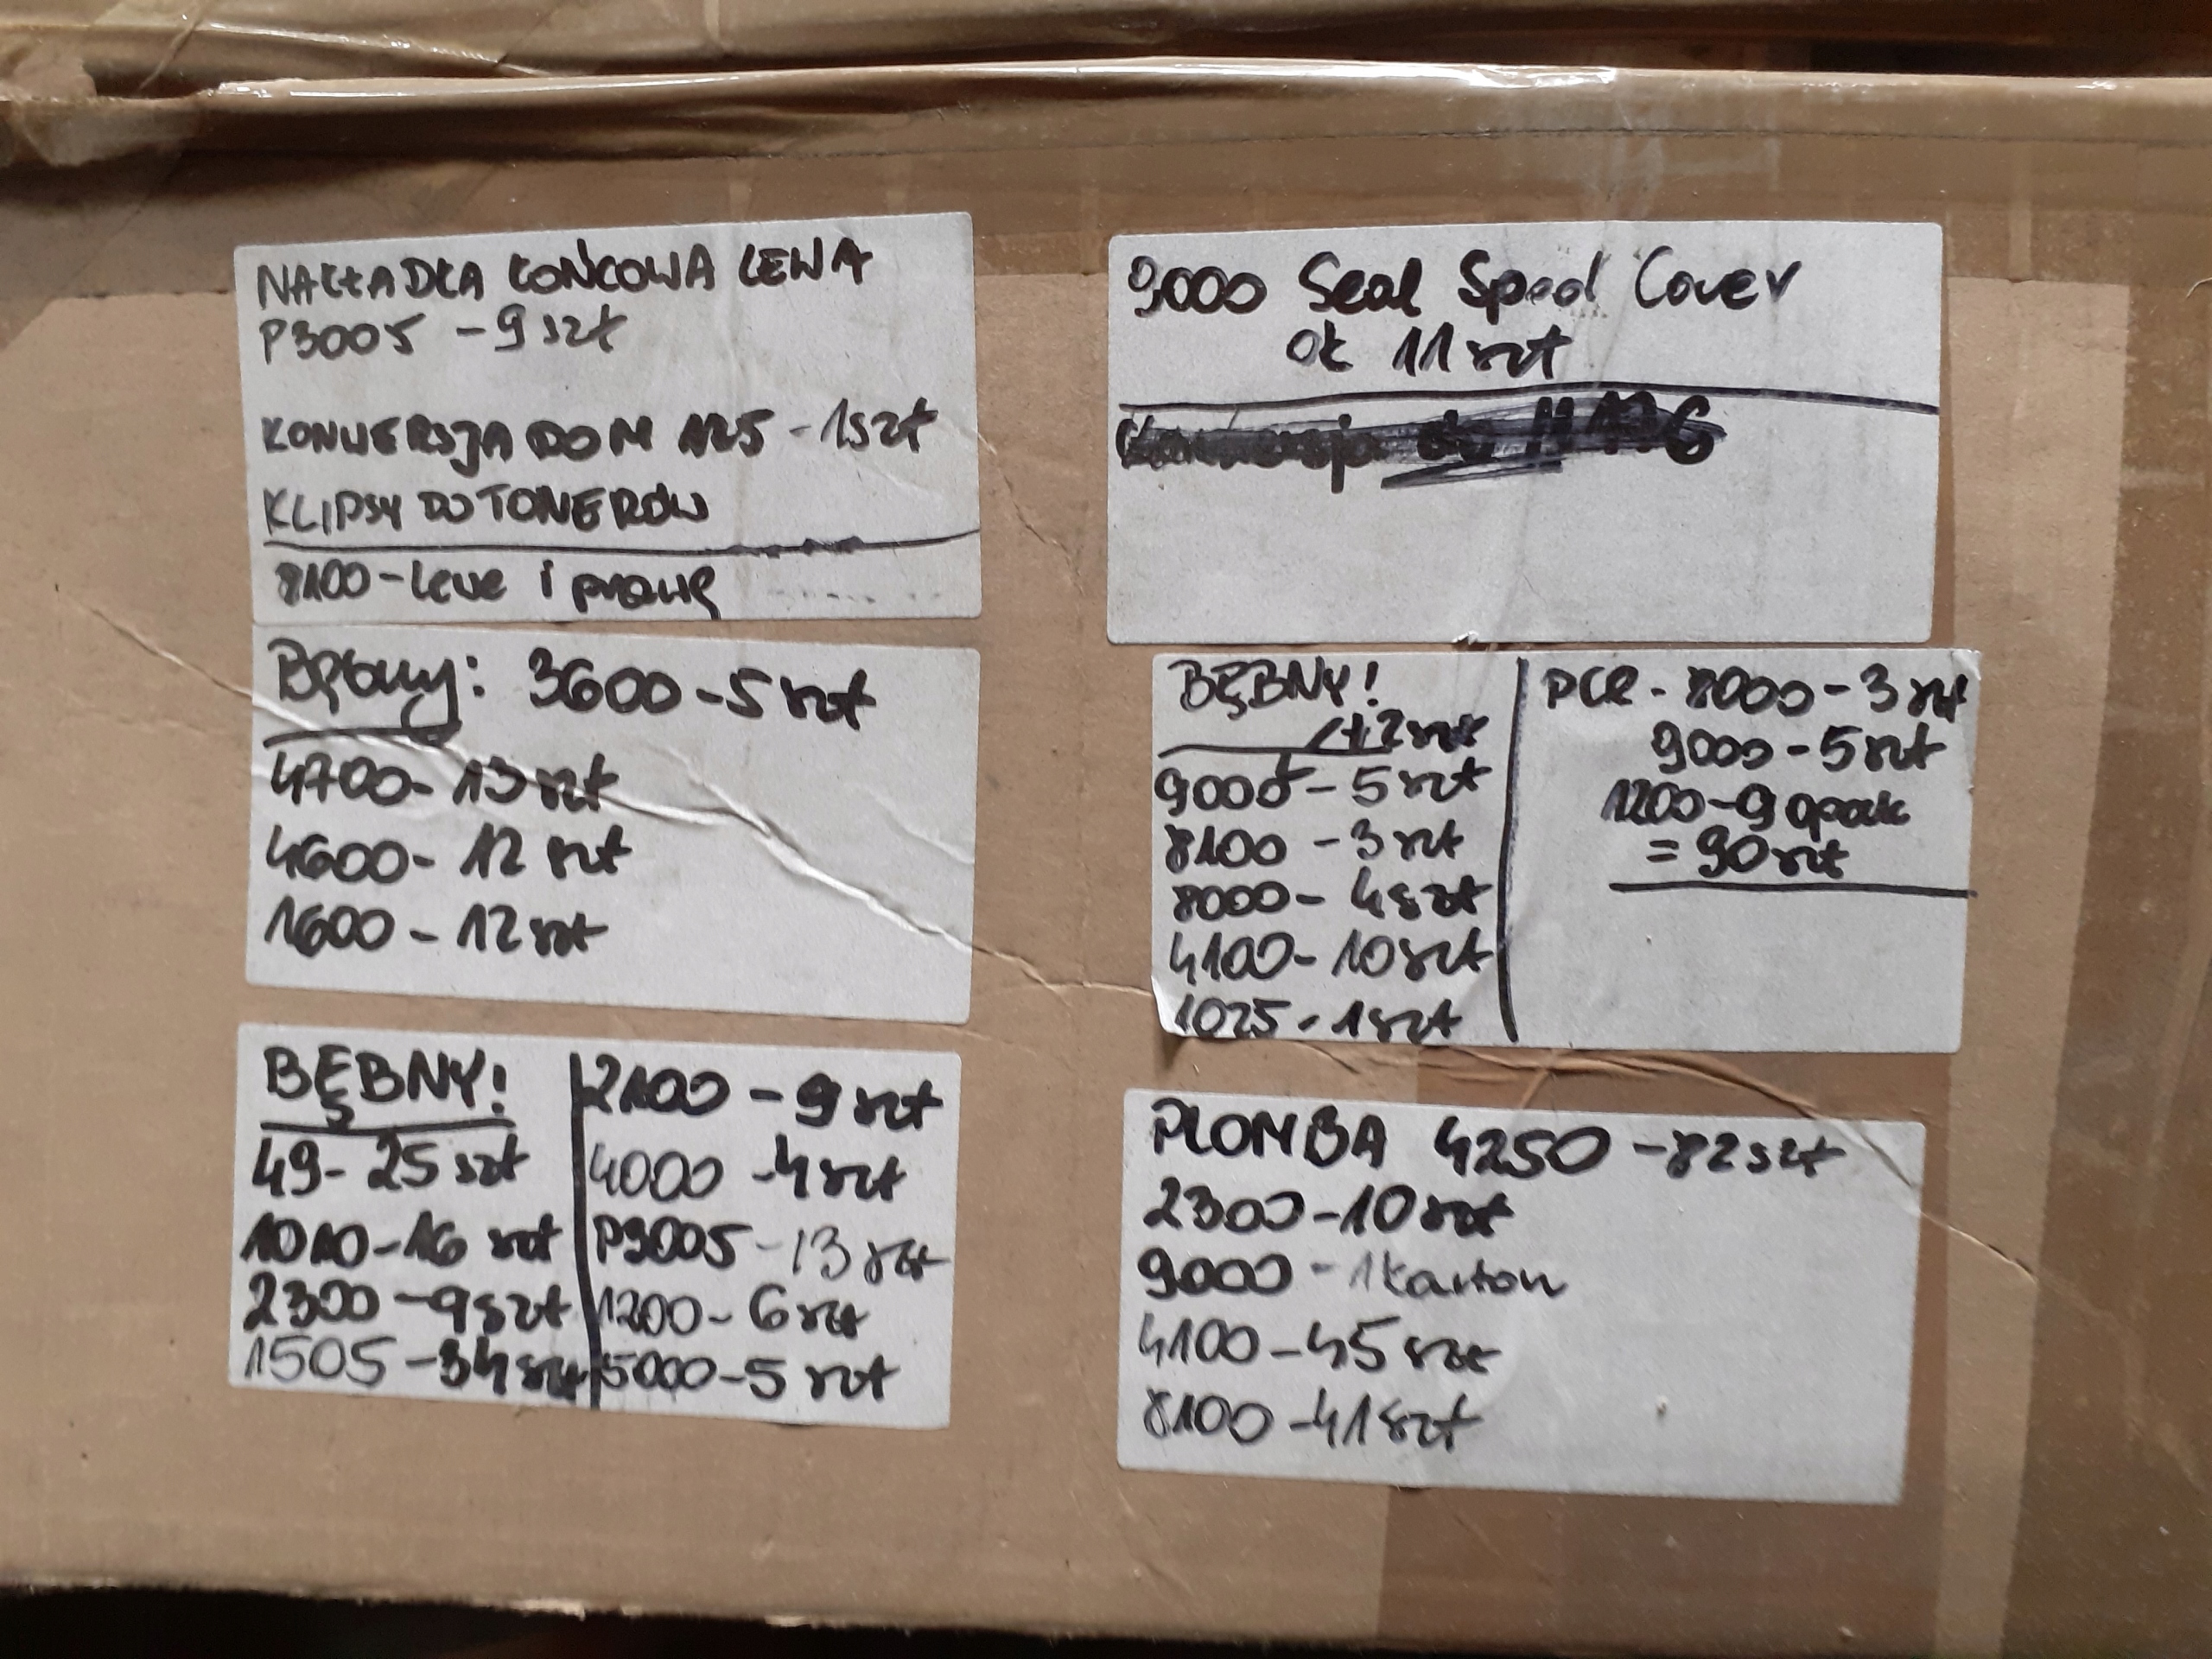 NAKŁADKA KOŃCOWA LEWA
P3005 - 9 szt
KONWERSJA DO M 125 - 1szt
KLIPSY DO TONERÓW
8100 - lewe i prawe
9000 Seal Spool Cover
ok 11 szt
Bębny: 3600 - 5 szt
4700 - 13 szt
4600 - 12 szt
1600 - 12 szt
BĘBNY!
/+2 szt
9000 - 5 szt
8100 - 3 szt
8000 - 4 szt
4100 - 10 szt
1025 - 1 szt
PCR - 8000 - 3 szt
9000 - 5 szt
1200 - 9 opak
= 90 szt
BĘBNY!
49 - 25 szt
1010 - 16 szt
2300 - 9 szt
1505 - 34 szt
2100 - 9 szt
4000 - 4 szt
P3005 - 13 szt
1200 - 6 szt
5000 - 5 szt
PLOMBA 4250 - 82 szt
2300 - 10 szt
9000 - 1 karton
4100 - 45 szt
8100 - 41 szt